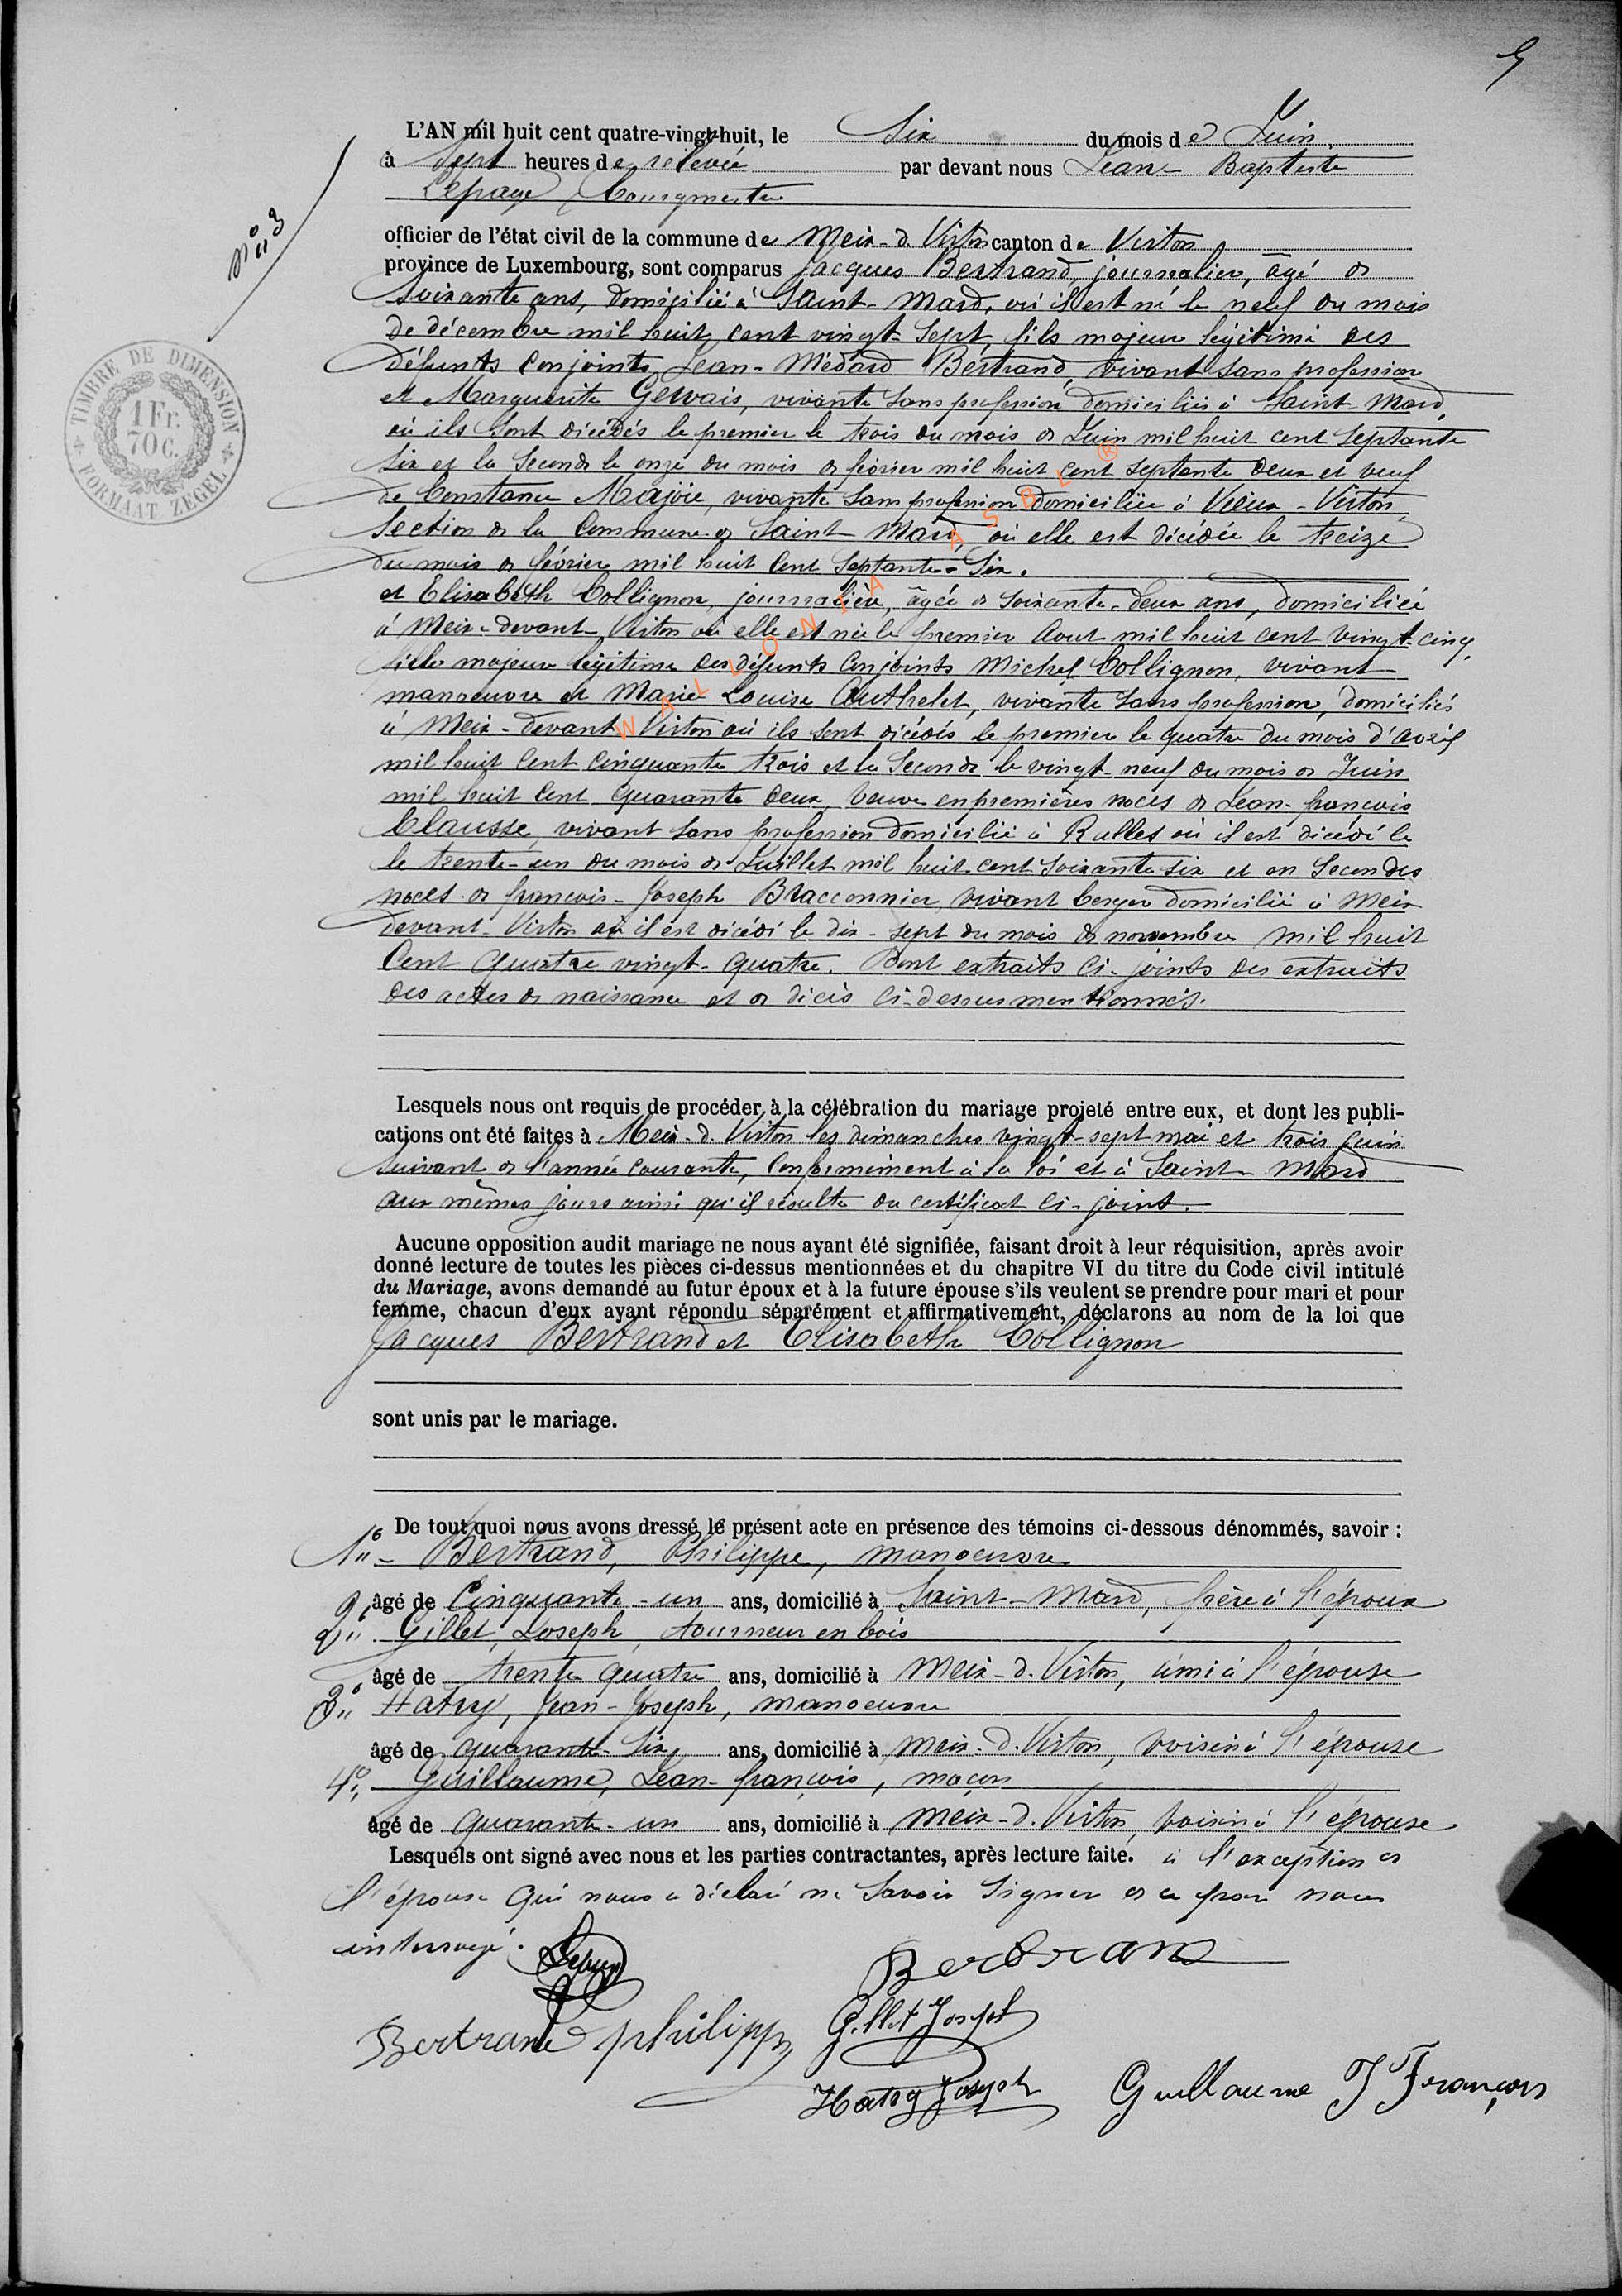 5
L'AN mil huit cent quatre-vingt-huit, le Six du mois de Juin
à Sept heures de relevée par devant nous Jean-Baptiste
Lepage Bourgmestre
N° 3
officier de l'état civil de la commune de Meix-d. Virton canton de Virton
province de Luxembourg, sont comparus Jacques Bertrand, journalier, âgé de
Soixante ans, domicilié à Saint-Mard, où il est né le neuf du mois
de décembre mil huit cent vingt-sept, fils majeur légitime des
défunts conjoints Jean-Médard Bertrand, vivant sans profession
et Marguerite Gervais, vivante sans profession domiciliés à Saint-Mard,
où ils sont décédés le premier le trois du mois de Juin mil huit cent septante
six et la seconde le onze du mois de février mil huit cent septante deux et veuf
de Constance Majoie, vivante sans profession domiciliée à Vieux-Virton,
Section de la Commune de Saint-Mard, où elle est décédée le treize
du mois de février mil huit cent septante-six.
et Elisabeth Collignon, journalière, âgée de soixante-deux ans, domiciliée
à Meix-devant-Virton où elle est née le premier Aout mil huit cent vingt-cinq,
fille majeure légitime des défunts conjoints Michel Collignon, vivant
manoeuvre et Marie Louise Authelet, vivante sans profession, domiciliés
à Meix-devant-Virton où ils sont décédés le premier le quatre du mois d'avril
mil huit cent cinquante trois et la Seconde le vingt-neuf du mois de Juin
mil huit cent quarante deux, veuve en premières noces de Jean-françois
Clausse, vivant sans profession domicilié à Rulles où il est décédé le
le trente-un du mois de Juillet mil huit cent soixante six et en Secondes
noces de françois-Joseph Bracconnier, vivant berger domicilié à Meix
devant-Virton où il est décédé le dix-sept du mois de novembre mil huit
Cent quatre vingt-quatre. Dont extraits ci-joints des extraits
des actes de naissance et de décès ci-dessus mentionnés.
TIMBRE DE DIMENSION
1 Fr.
70 C.
FORMAAT ZEGEL
WALLONIA ASBL ®
Lesquels nous ont requis de procéder à la célébration du mariage projeté entre eux, et dont les publi-
cations ont été faites à Meix-d. Virton les dimanches vingt-sept mai et trois juin
suivant de l'année courante, conformément à la loi et à Saint-Mard
aux mêmes jours ainsi qu'il résulte du certificat ci-joint.
Aucune opposition audit mariage ne nous ayant été signifiée, faisant droit à leur réquisition, après avoir
donné lecture de toutes les pièces ci-dessus mentionnées et du chapitre VI du titre du Code civil intitulé
du Mariage, avons demandé au futur époux et à la future épouse s'ils veulent se prendre pour mari et pour
femme, chacun d'eux ayant répondu séparément et affirmativement, déclarons au nom de la loi que
Jacques Bertrand et Elisabeth Collignon
sont unis par le mariage.
De tout quoi nous avons dressé le présent acte en présence des témoins ci-dessous dénommés, savoir :
1° Bertrand, Philippe, manoeuvre
âgé de Cinquante-un ans, domicilié à Saint-Mard, frère à l'époux
2° Gillet, Joseph, tourneur en bois
âgé de trente quatre ans, domicilié à Meix-d. Virton, ami à l'épouse
3° Hatry, Jean-Joseph, manoeuvre
âgé de quarante-six ans, domicilié à Meix-d. Virton, voisin à l'épouse
4° Guillaume, Jean-françois, maçon
âgé de quarante-un ans, domicilié à Meix-d. Virton, voisin à l'épouse
Lesquels ont signé avec nous et les parties contractantes, après lecture faite. à l'exception de
l'épouse qui nous a déclaré ne savoir signer de ce par nous
interrogé.
Lepage
Bertrand
Bertrand philippe
Gillet Joseph
Hatry Joseph
Guillaume J François